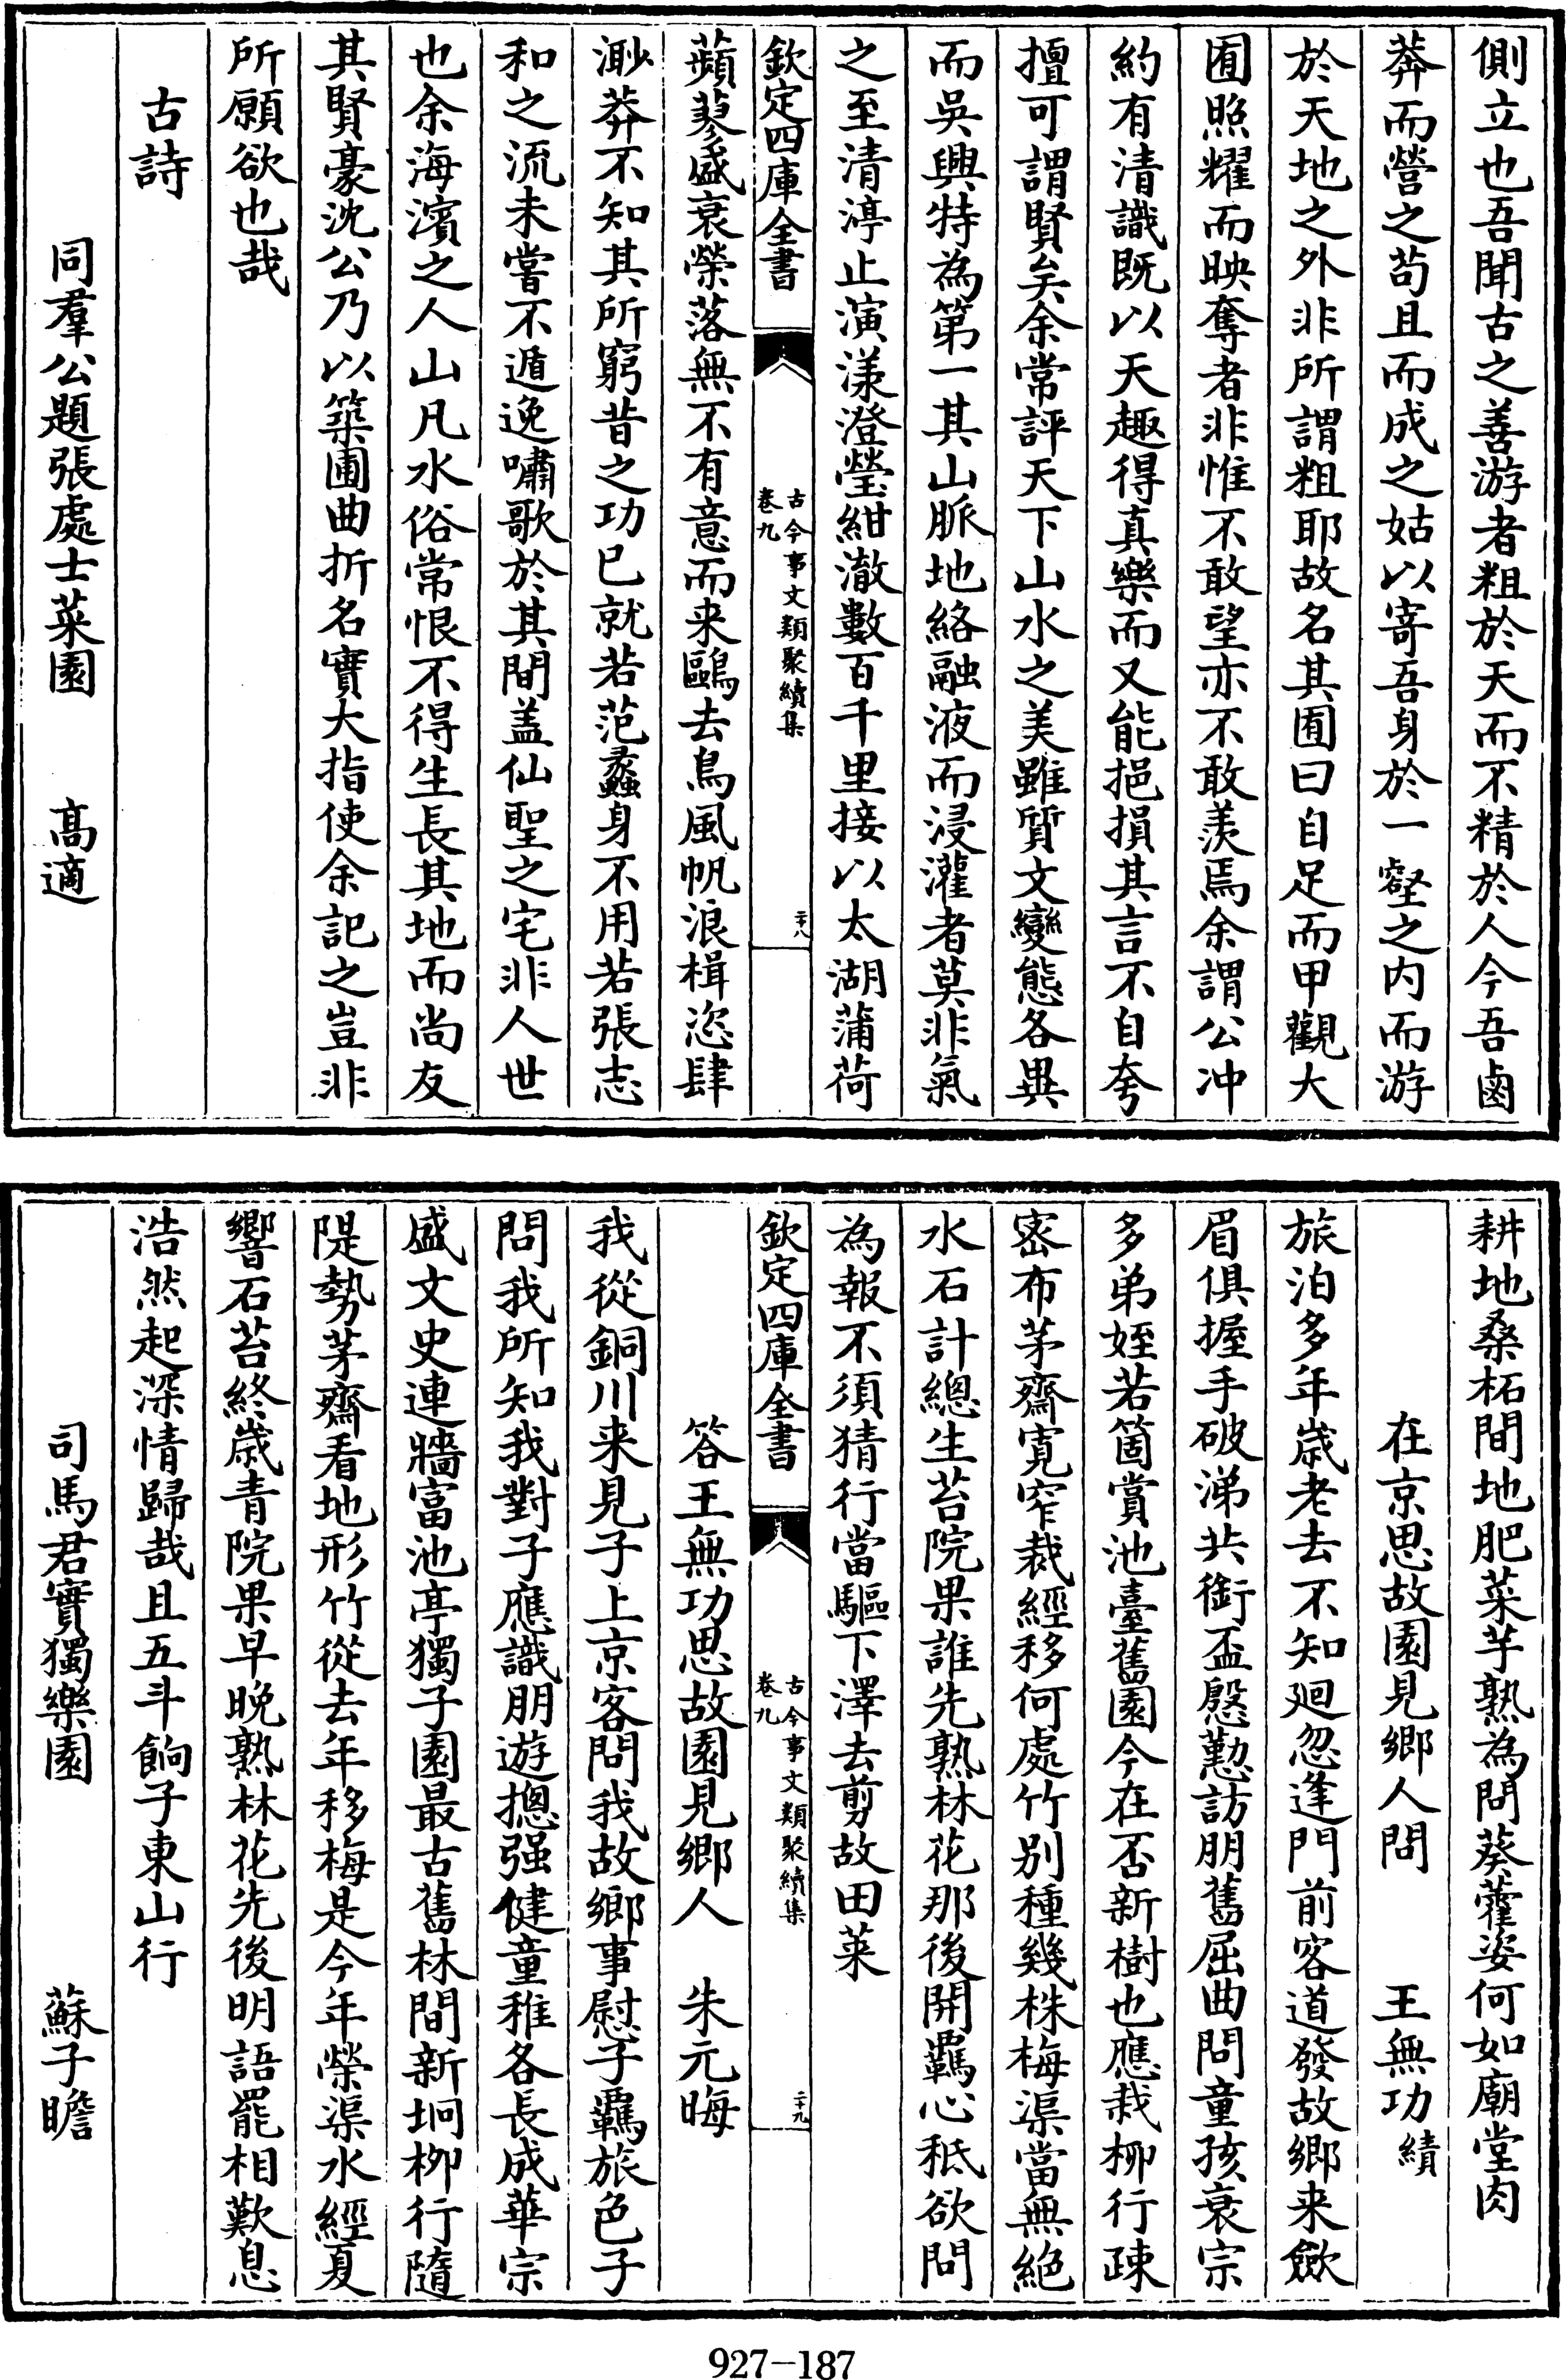 側立也吾聞古之善游者粗於天而不精於人今吾鹵
莽而營之苟且而成之姑以寄吾身於一壑之内而游
於天地之外非所謂粗耶故名其囿曰自足而甲觀大
囿照耀而映奪者非惟不敢望亦不敢羡焉余謂公冲
約有清識既以天趣得真樂而又能挹損其言不自夸
擅可謂賢矣余常評天下山水之美雖質文變態各異
而吳興特為第一其山脈地絡融液而浸灌者莫非氣
之至清渟止演漾澄瑩紺澈數百千里接以太湖蒲荷
欽定四庫全書
古今事文類聚續集
卷九
二十八
蘋蓼盛衰榮落無不有意而来鷗去鳥風帆浪楫恣肆
渺莽不知其所窮昔之功已就若范蠡身不用若張志
和之流未嘗不遁逸嘯歌於其間盖仙聖之宅非人世
也余海濱之人山凡水俗常恨不得生長其地而尚友
其賢豪沈公乃以築圃曲折名實大指使余記之豈非
所願欲也哉
古詩
同羣公題張處士菜園 高適
耕地桑柘間地肥菜芋熟為問葵藿姿何如廟堂肉
在京思故園見鄉人問 王無功績
旅泊多年歲老去不知廻忽逢門前客道發故鄉来歛
眉俱握手破涕共銜盃慇懃訪朋舊屈曲問童孩衰宗
多弟姪若箇賞池臺舊園今在否新樹也應栽柳行疎
密布茅齋寛窄裁經移何處竹别種幾株梅渠當無絶
水石計總生苔院果誰先熟林花那後開羈心秪欲問
為報不須猜行當驅下澤去剪故田萊
欽定四庫全書
古今事文類聚續集
卷九
二十九
答王無功思故園見鄉人 朱元晦
我從銅川来見子上京客問我故鄉事慰子羈旅色子
問我所知我對子應識朋遊摠强健童稚各長成華宗
盛文史連牆富池亭獨子園最古舊林間新坰柳行隨
隄勢茅齋看地形竹從去年移梅是今年榮渠水經夏
響石苔終歲青院果早晚熟林花先後明語罷相歎息
浩然起深情歸哉且五斗餉子東山行
司馬君實獨樂園 蘇子瞻
927-187